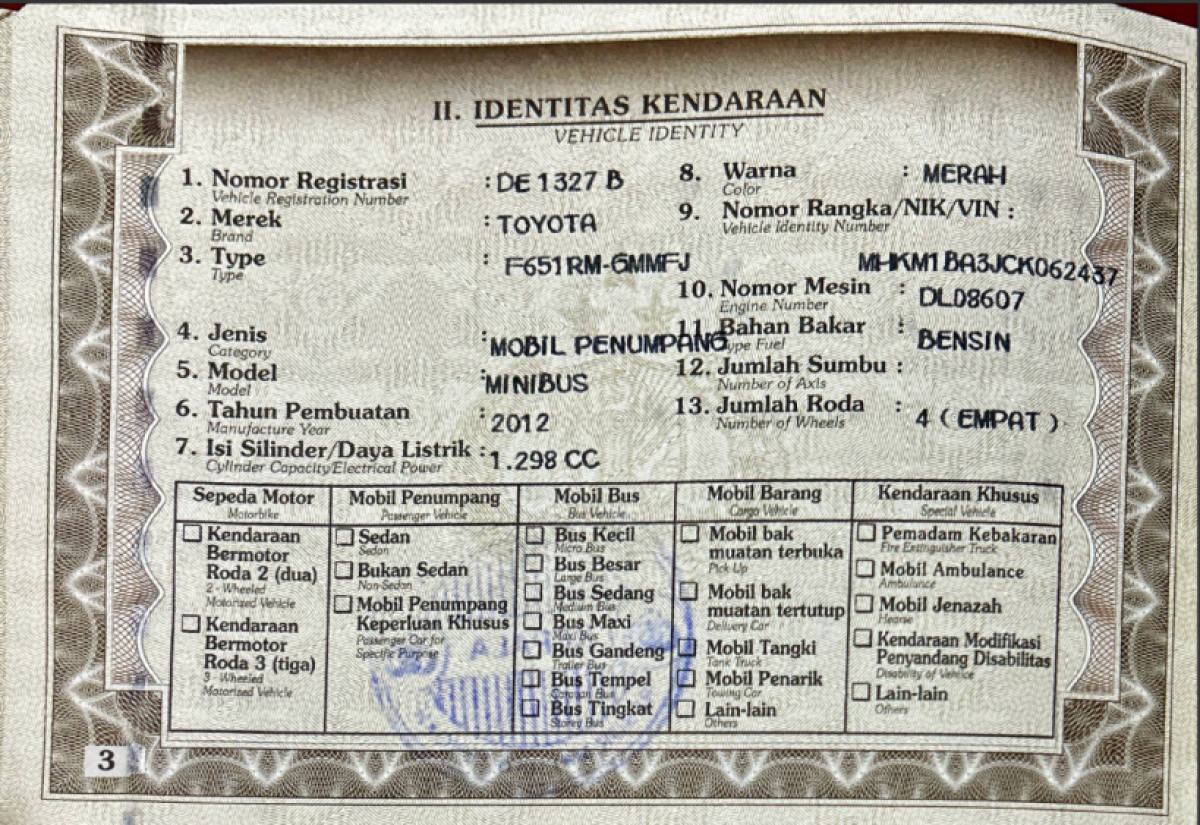 II. IDENTITAS KENDARAAN
VEHICLE IDENTITY
1. Nomor Registrasi : DE 1327 B
Vehicle Registration Number
2. Merek : TOYOTA
Brand
3. Type : F651RM-GMMFJ
Type
4. Jenis : MOBIL PENUMPANG
Category
5. Model : MINIBUS
Model
6. Tahun Pembuatan : 2012
Manufacture Year
7. Isi Silinder/Daya Listrik : 1.298 CC
Cylinder Capacity/Electrical Power
8. Warna : MERAH
Color
9. Nomor Rangka/NIK/VIN :
Vehicle Identity Number
MHKM1BA3JCK062437
10. Nomor Mesin : DLD8607
Engine Number
11. Bahan Bakar : BENSIN
Type Fuel
12. Jumlah Sumbu :
Number of Axis
13. Jumlah Roda : 4 ( EMPAT )
Number of Wheels
Sepeda Motor
Motorbike
Kendaraan
Bermotor
Roda 2 (dua)
2 - Wheeled
Motorized Vehicle
Kendaraan
Bermotor
Roda 3 (tiga)
3 - Wheeled
Motorized Vehicle
Mobil Penumpang
Passenger Vehicle
Sedan
Sedan
Bukan Sedan
Non-Sedan
Mobil Penumpang
Keperluan Khusus
Passenger Car for
Specific Purpose
Mobil Bus
Bus Vehicle
Bus Kecil
Micro Bus
Bus Besar
Large Bus
Bus Sedang
Medium Bus
Bus Maxi
Maxi Bus
Bus Gandeng
Trailer Bus
Bus Tempel
Caravan Bus
Bus Tingkat
Storey Bus
Mobil Barang
Cargo Vehicle
Mobil bak
muatan terbuka
Pick Up
Mobil bak
muatan tertutup
Delivery Car
Mobil Tangki
Tank Truck
Mobil Penarik
Towing Car
Lain-lain
Others
Kendaraan Khusus
Special Vehicle
Pemadam Kebakaran
Fire Extinguisher Truck
Mobil Ambulance
Ambulance
Mobil Jenazah
Hearse
Kendaraan Modifikasi
Penyandang Disabilitas
Disability of Vehicle
Lain-lain
Others
3